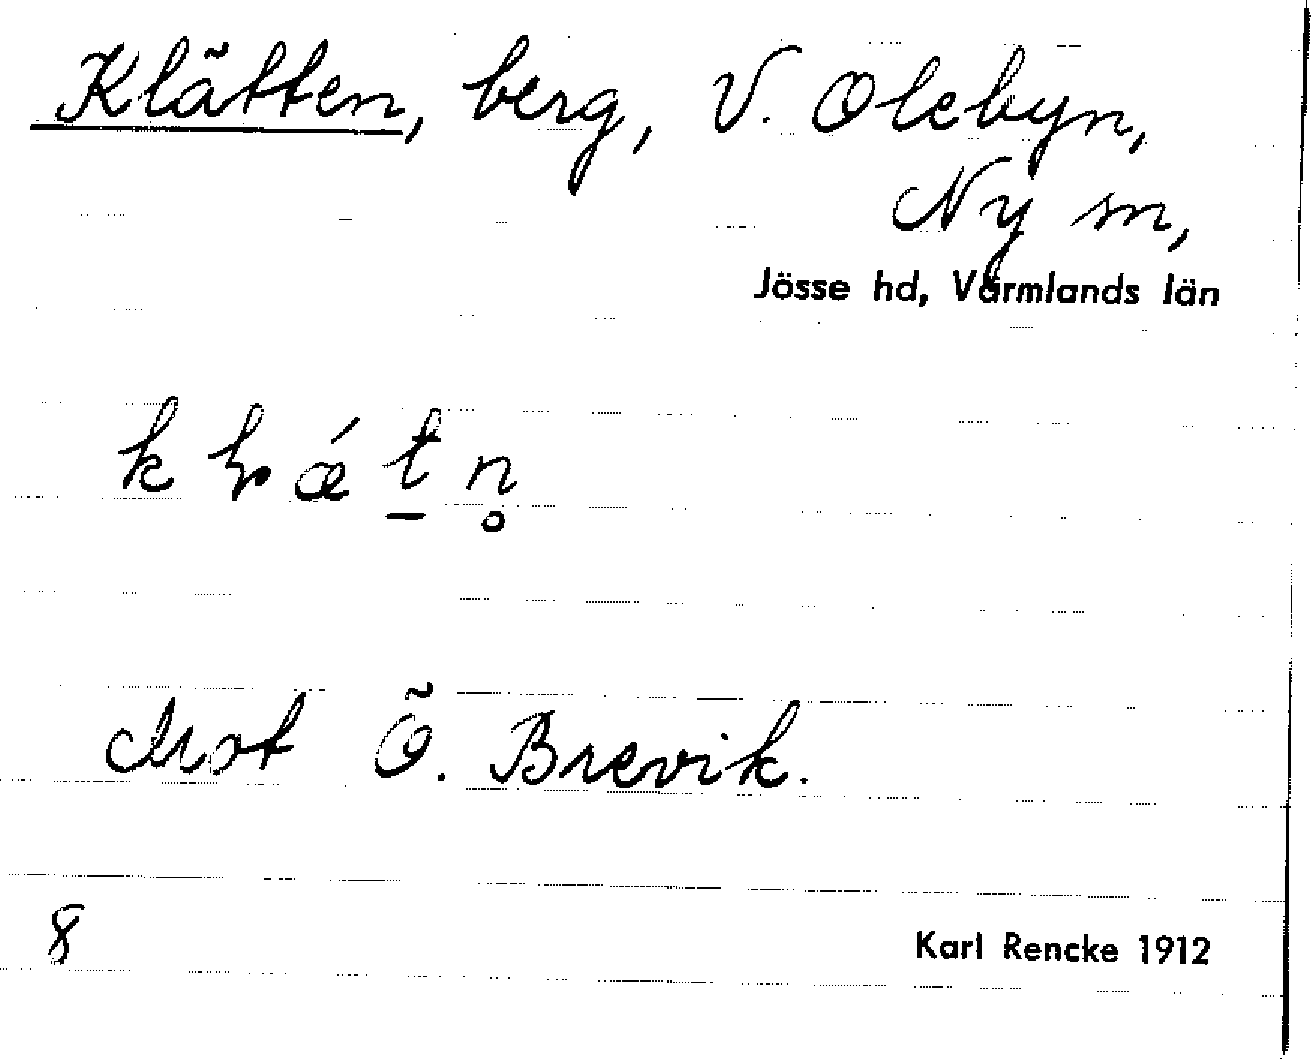 Klätten, berg, V. Olebyn,
Ny sn,
Jösse hd, Värmlands län
k ɽ ǽ t̠ n̥
Mot Ö. Brevik.
8
Karl Rencke 1912